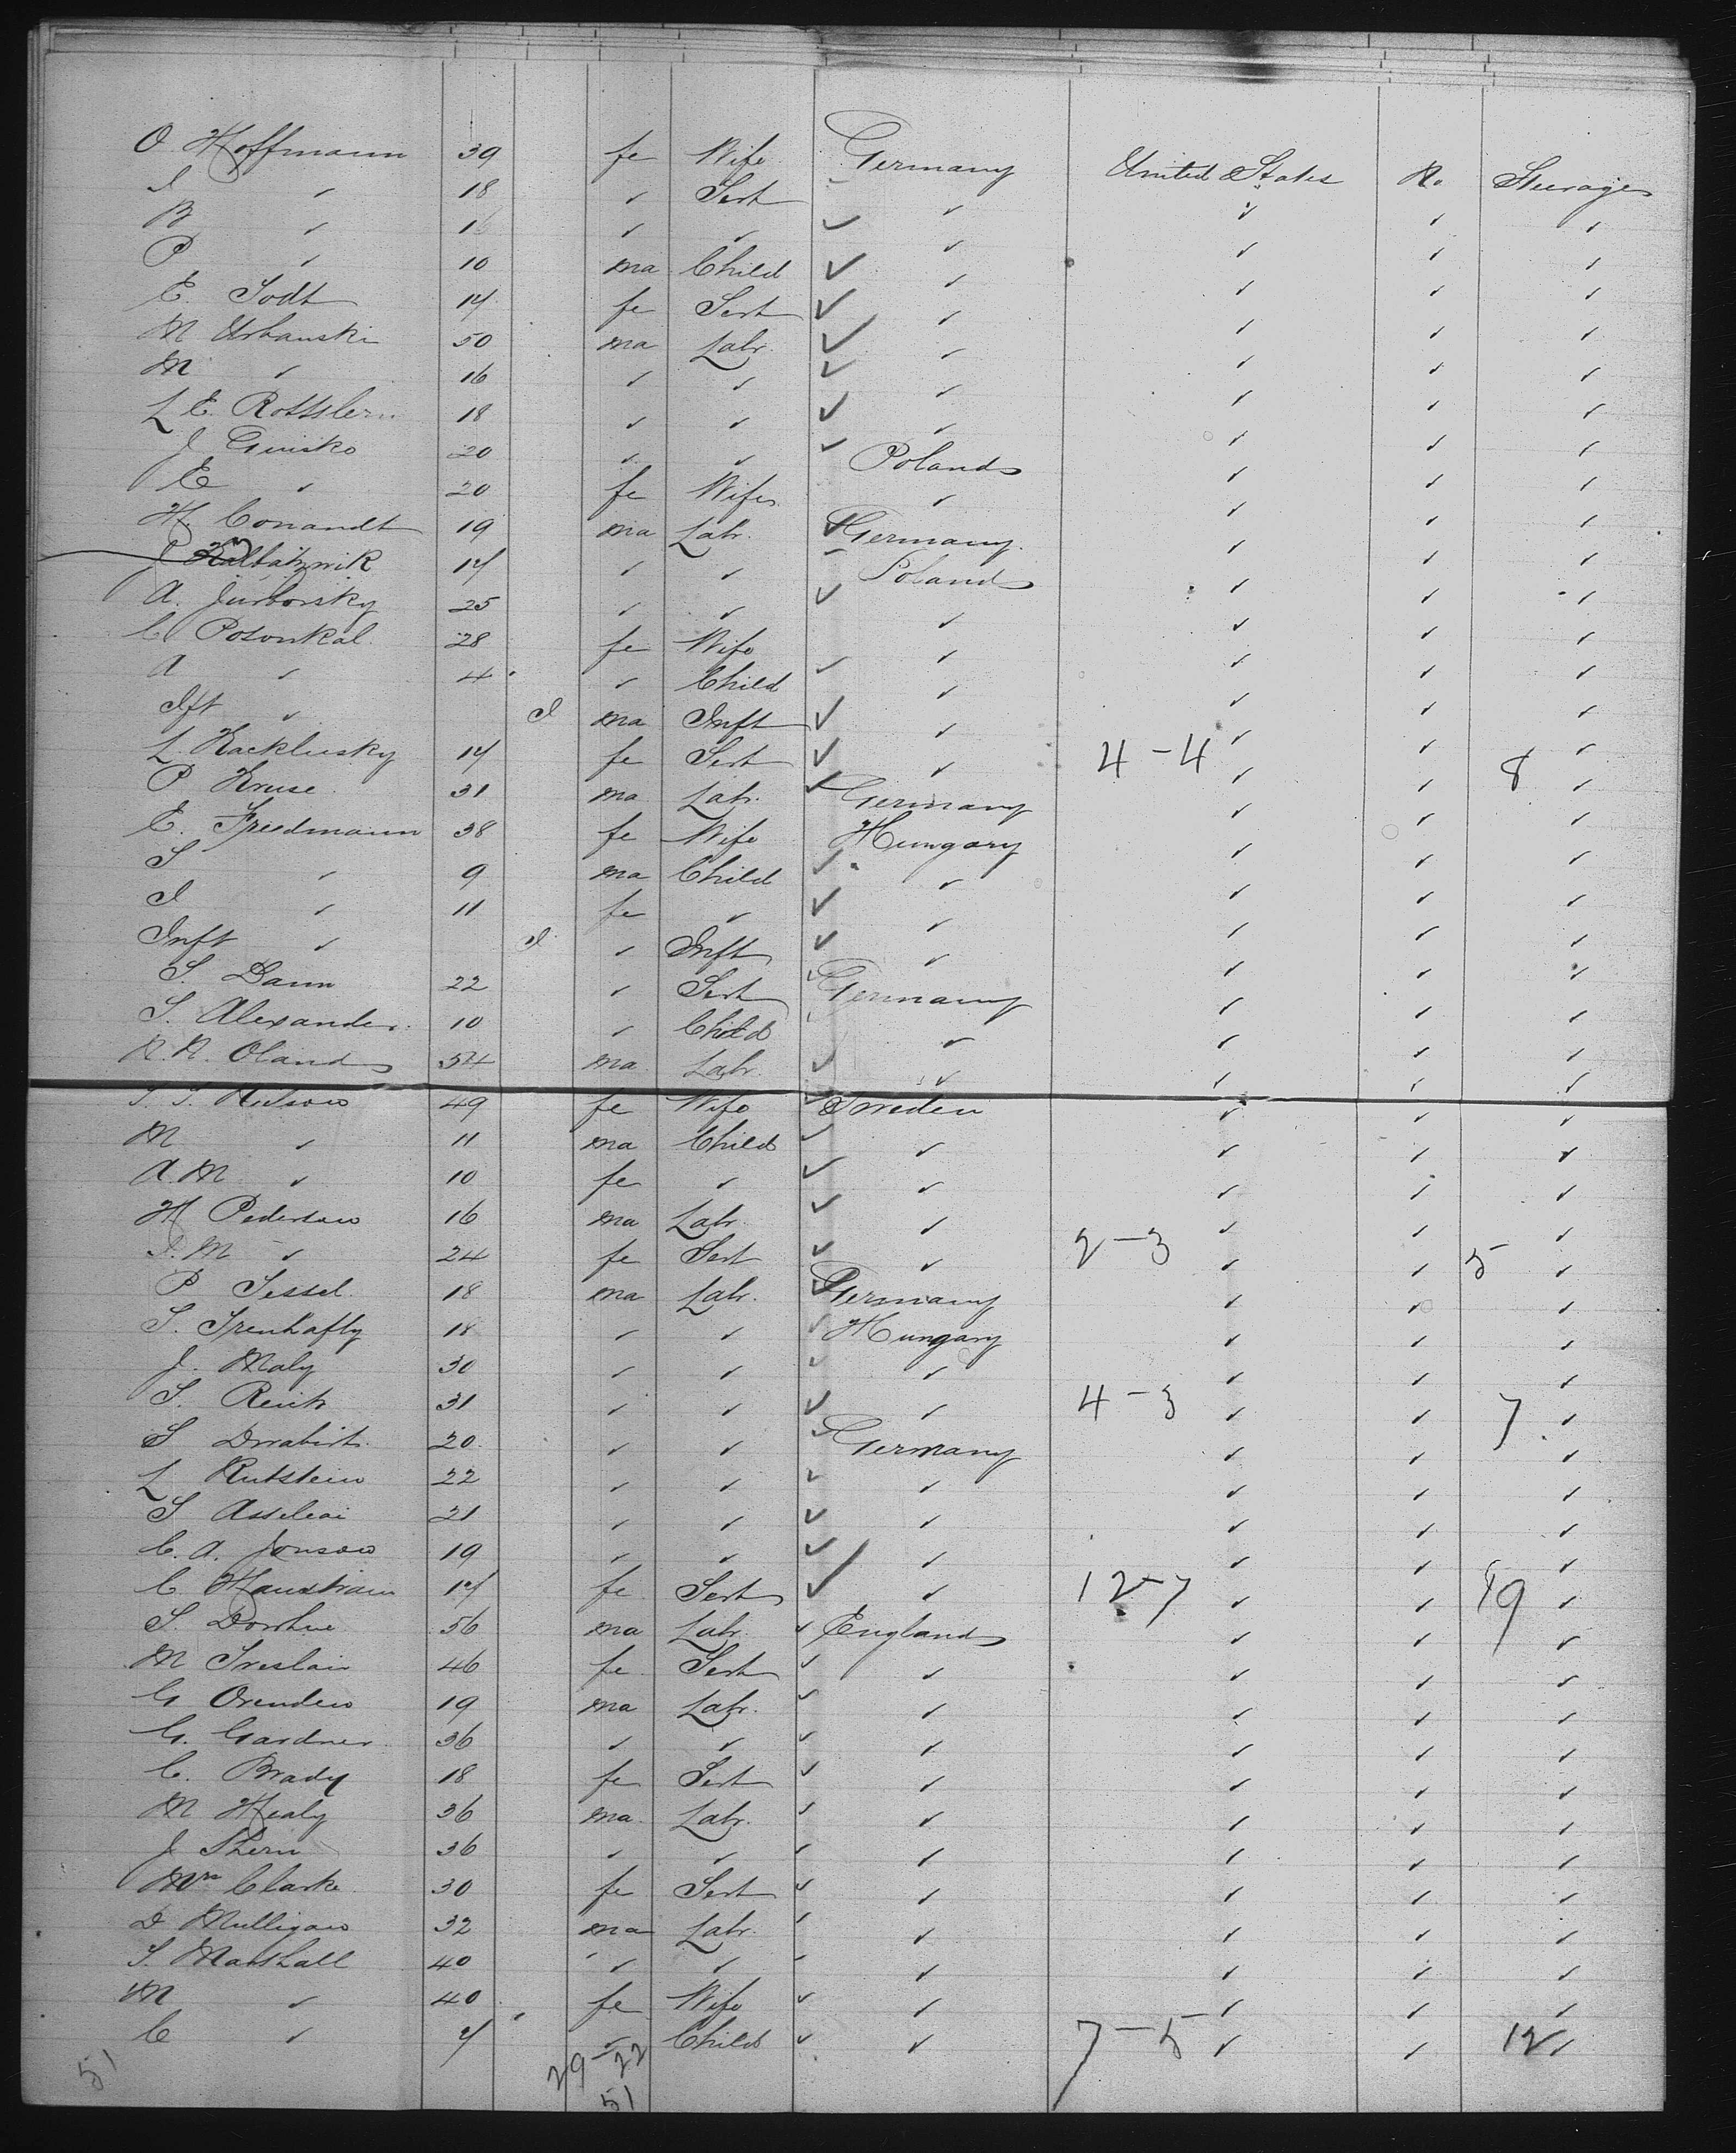 O. Hoffmann 39 fe Wife Germany United States No Steerage
I ✓ 18 ✓ Sert ✓ ✓ ✓ ✓
B ✓ 16 ✓ ✓ ✓ ✓ ✓ ✓
P ✓ 10 ma Child ✓ ✓ ✓ ✓
E. Todt 14 fe Sert ✓ ✓ ✓ ✓
M Urbanski 50 ma Labr. ✓ ✓ ✓ ✓
M ✓ 16 ✓ ✓ ✓ ✓ ✓ ✓
L E. 18 ✓ ✓ ✓ ✓ ✓ ✓
J 20 ✓ ✓ Poland ✓ ✓ ✓
E ✓ 20 fe Wife ✓ ✓ ✓ ✓
H. Conandt 19 ma Labr. Germany ✓ ✓ ✓
14 ✓ ✓ Poland ✓ ✓ ✓
A. Jurborsky 25 ✓ ✓ ✓ ✓ ✓ ✓
C Posonkal 28 fe Wife ✓ ✓ ✓ ✓
A ✓ 4 ✓ Child ✓ ✓ ✓ ✓
Ift ✓ I ma Inft ✓ ✓ ✓ ✓
L. Kacklusky 14 fe Sert ✓ 4-4 ✓ ✓ 8 ✓
P Kruse 31 ma Labr. Germany ✓ ✓ ✓
E. Friedmann 38 fe Wife Hungary ✓ ✓ ✓
S ✓ 9 ma Child ✓ ✓ ✓ ✓
I ✓ 11 fe ✓ ✓ ✓ ✓ ✓
Inft ✓ I ✓ Inft ✓ ✓ ✓ ✓
S. Dann 22 ✓ Sert Germany ✓ ✓ ✓
S. Alexander 10 ✓ Child ✓ ✓ ✓ ✓
N. N. Oland 54 ma Labr. ✓ ✓ ✓ ✓
Nelson 49 fe Wife Sweden ✓ ✓ ✓
M ✓ 11 ma Child ✓ ✓ ✓ ✓
A. M ✓ 10 fe ✓ ✓ ✓ ✓ ✓
H Pederson 16 ma Labr. ✓ ✓ ✓ ✓
I. M ✓ 24 fe Sert ✓ 2-3 ✓ ✓ 5 ✓
P Sessel 18 ma Labr. Germany ✓ ✓ ✓
S. 18 ✓ ✓ Hungary ✓ ✓ ✓
J. Maly 30 ✓ ✓ ✓ ✓ ✓ ✓
S. 31 ✓ ✓ ✓ 4-3 ✓ ✓ 7 ✓
S 20 ✓ ✓ Germany ✓ ✓ ✓
L Rutstein 22 ✓ ✓ ✓ ✓ ✓ ✓
S 21 ✓ ✓ ✓ ✓ ✓ ✓
C. A. Jonson 19 ✓ ✓ ✓ ✓ ✓ ✓
C. 14 fe Sert ✓ 12-7 ✓ ✓ 19 ✓
S. 56 ma Labr. England ✓ ✓ ✓
M 46 fe Sert ✓ ✓ ✓ ✓
G Orenden 19 ma Labr. ✓ ✓ ✓ ✓
G. Gardner 36 ✓ ✓ ✓ ✓ ✓ ✓
C. Brady 18 fe Sert ✓ ✓ ✓ ✓
M Healy 36 ma Labr. ✓ ✓ ✓ ✓
J 36 ✓ ✓ ✓ ✓ ✓ ✓
Mrs Clarke 30 fe Sert ✓ ✓ ✓ ✓
D Mulligan 32 ma Labr. ✓ ✓ ✓ ✓
S. Marshall 40 ✓ ✓ ✓ ✓ ✓ ✓
M ✓ 40 fe Wife ✓ ✓ ✓ ✓
C ✓ 4 ✓ Child ✓ 7-5 ✓ ✓ 12 ✓
51 29-22
51